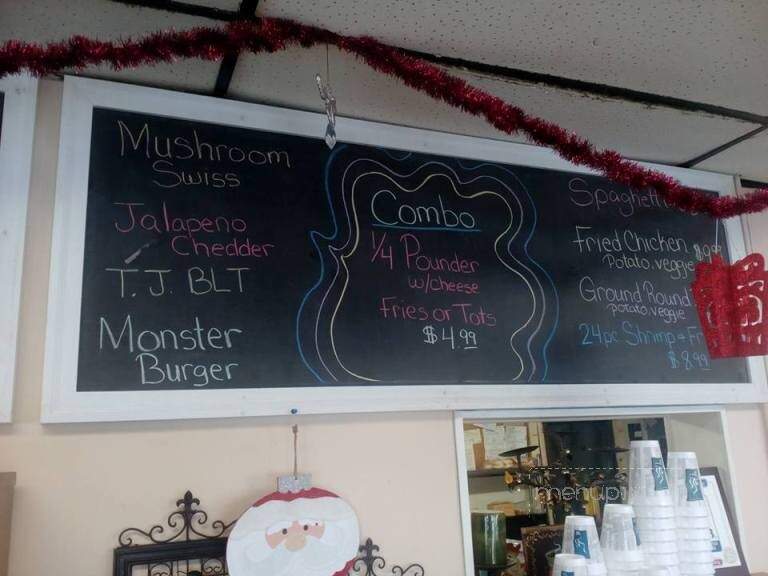 Mushroom
Swiss
Jalapeno
Chedder
T.J. BLT
Monster
Burger
Combo
1/4 Pounder
w/cheese
Fries or Tots
$4.99
Spaghetti
Fried Chicken
Potato.veggie
Ground Round
potato.veggie
24pc Shrimp + Fr
$8.99
menupix